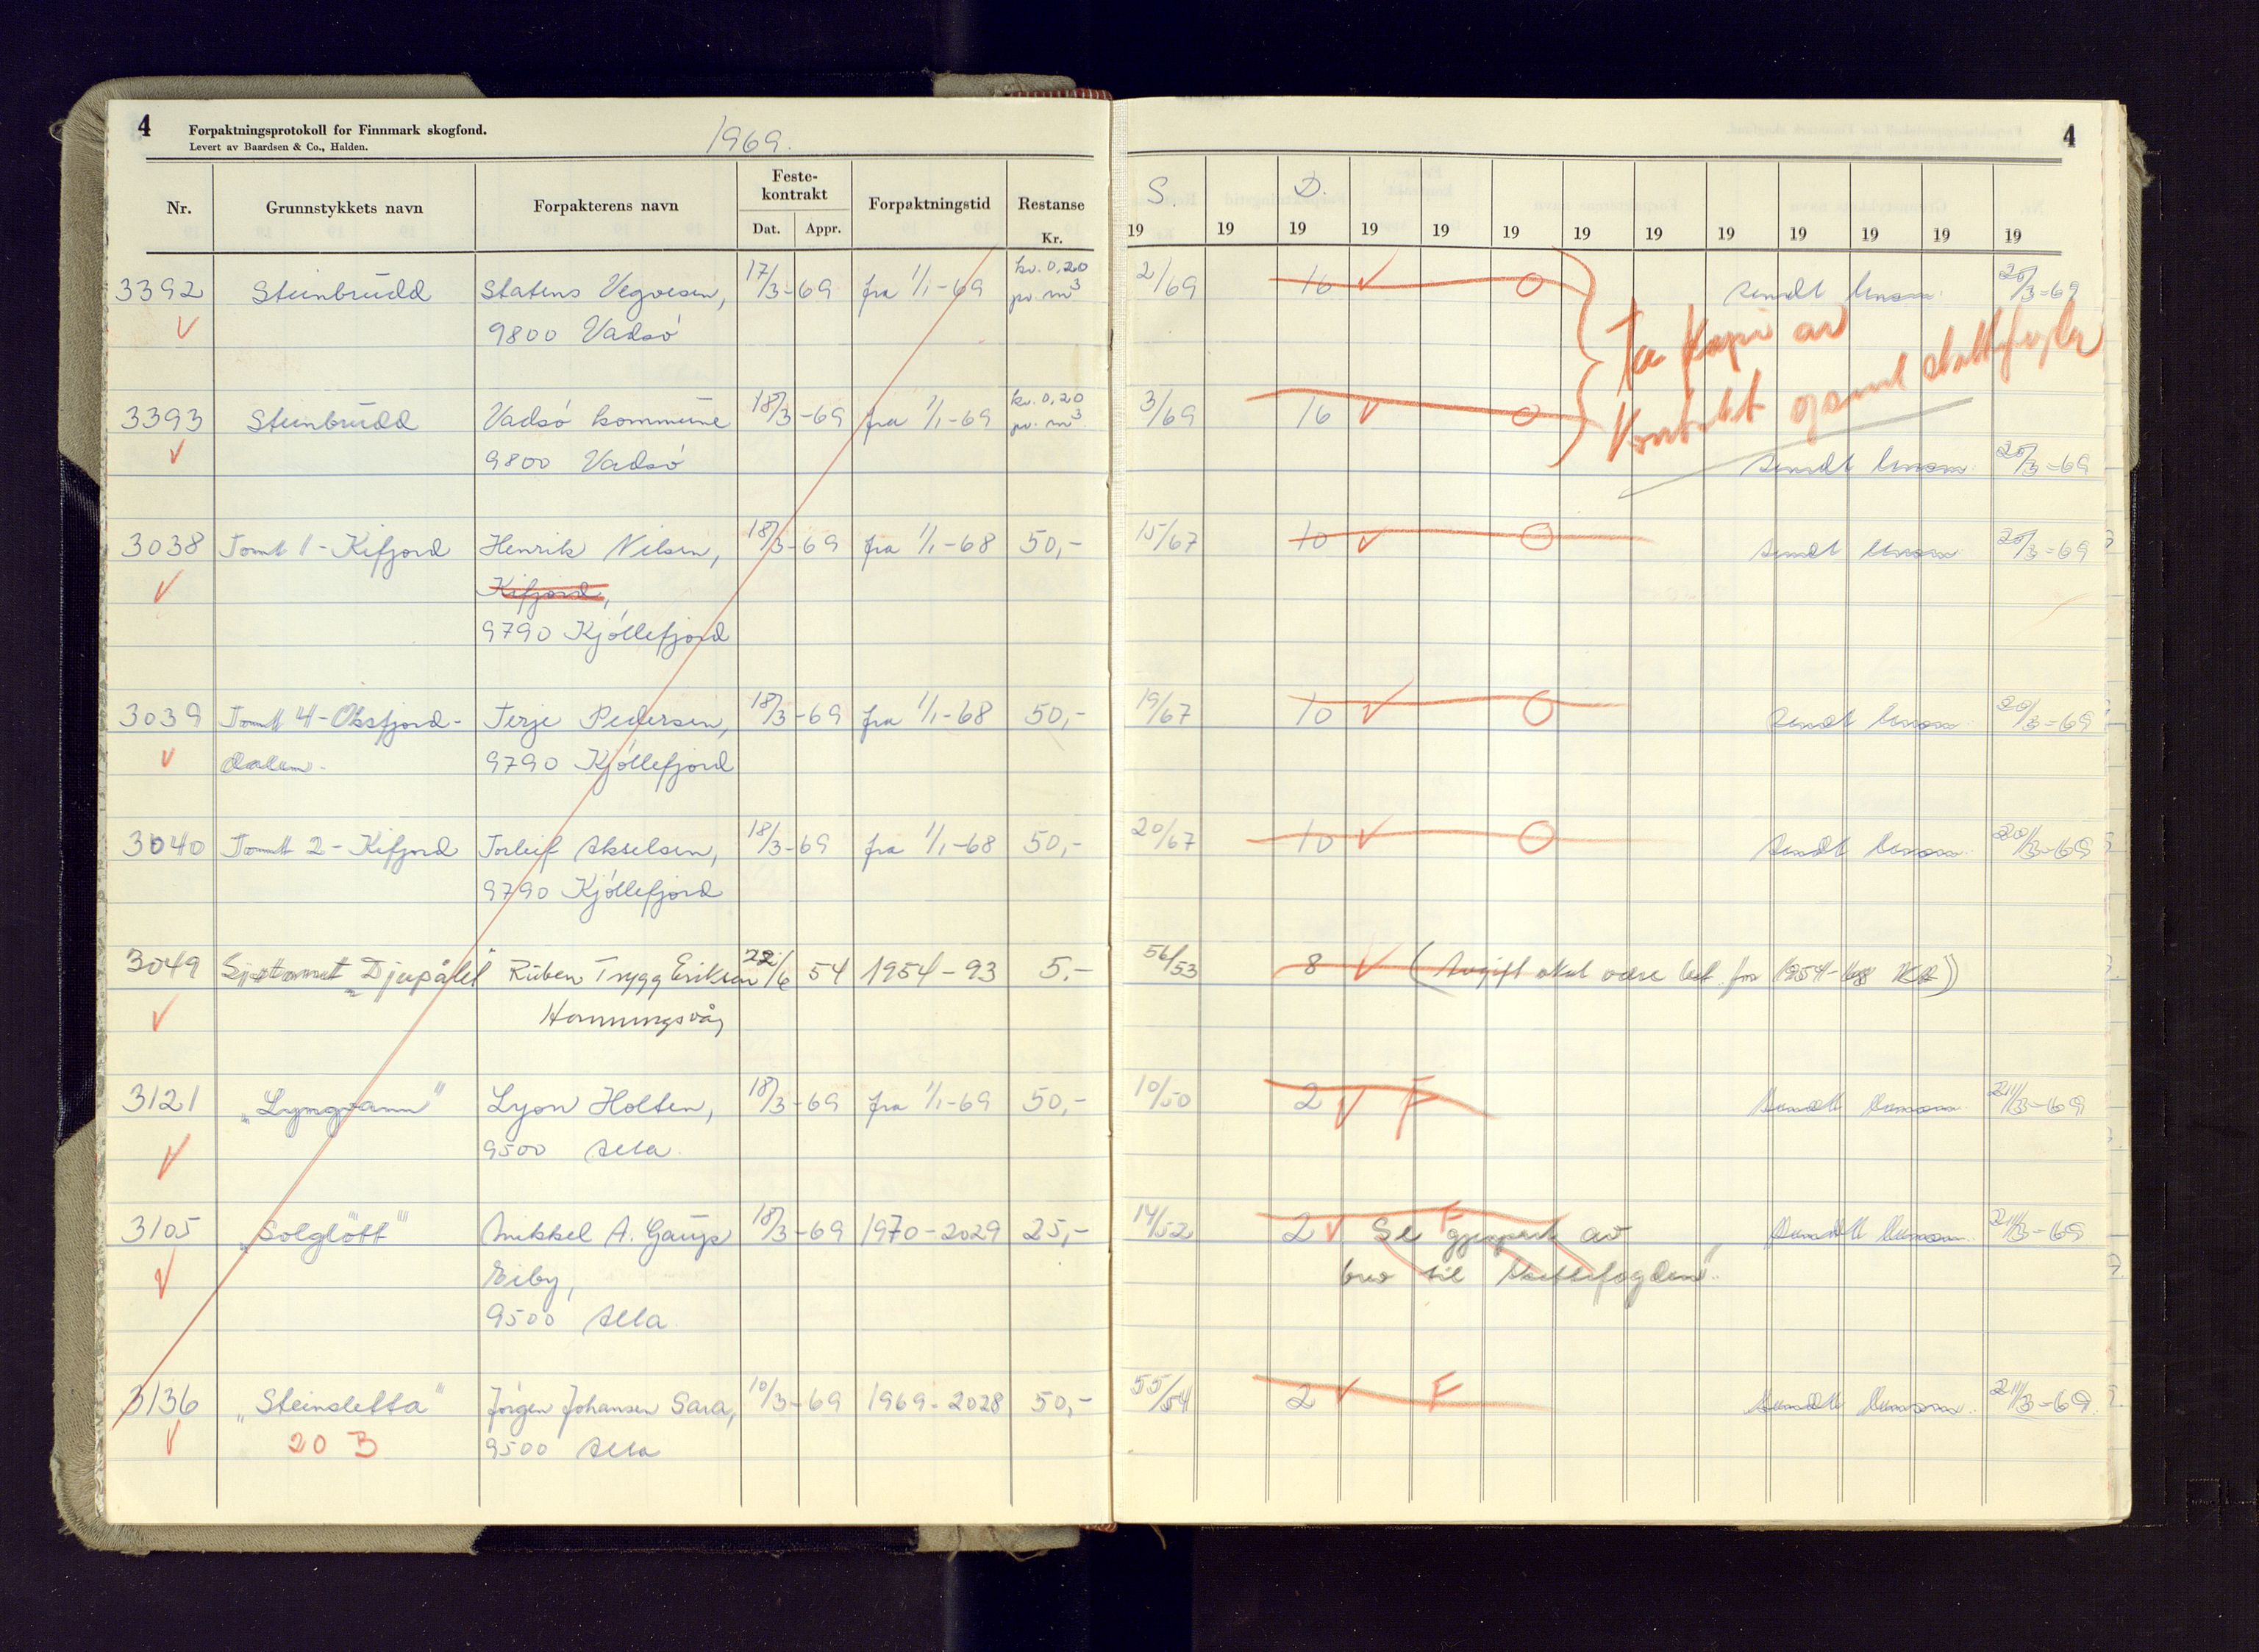 4 Forpaktningsprotokoll for Finnmark skogfond. 1969.
Levert av Baardsen & Co., Halden.
Nr. Grunnstykkets navn Forpakterens navn Feste-kontrakt Dat. Appr. Forpaktningstid Restanse Kr.
3392 Steinbrudd Statens Vegvesen, 17/3-69 fra 1/1-69 kr. 0,20
9800 Vadsö pr. m3
3393 Steinbrudd Vadsö kommune 18/3-69 fra 1/1-69 kr. 0,20
9800 Vadsö pr. m3
3038 Tomt 1 - Kifjord Henrik Nilsen, 18/3-69 fra 1/1-68 50,-
Kifjord,
9790 Kjöllefjord
3039 Tomt 4 - Oksfjord- Terje Pedersen, 18/3-69 fra 1/1-68 50,-
dalen. 9790 Kjöllefjord
3040 Tomt 2 - Kifjord Torleif Akselsen, 18/3-69 fra 1/1-68 50,-
9790 Kjöllefjord
3049 Djupålet Ruben Trygg Eriksen 22/6 54 1954-93 5.-
Honningsvåg
3121 „Lyngvann" Lyon Holten, 18/3-69 fra 1/1-69 50,-
9500 Alta
3105 „Solglött" Mikkel A. Gaup 18/3-69 1970-2029 25,-
Eiby,
9500 Alta
3136 „Steinsletta" Jörgen Johansen Sara, 10/3-69 1969-2028 50,-
20 B 9500 Alta
4
S. D.
19 19 19 19 19 19 19 19 19 19 19 19 19
2/69 16 sendt 20/3-69
Ta kopi av
3/69 16 Kontrakt
sendt 20/3-69
15/67 10 sendt 20/3-69
19/67 10 sendt 20/3-69
20/67 10 sendt 20/3-69
56/53 8 (Avgift skal være bet. for 1954-68)
10/50 2 F sendt 21/3-69
14/52 2 F Se gjenpart av sendt 21/3-69
brev til skattefogden".
55/54 2 F sendt 21/3-69